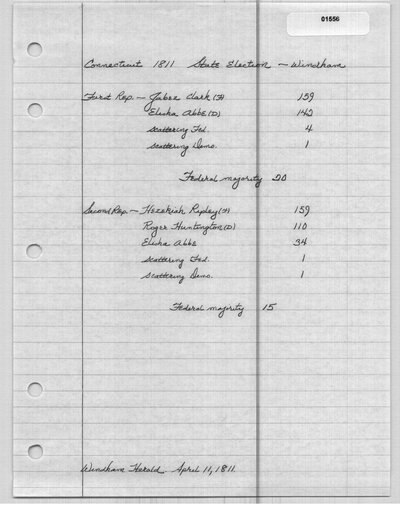 01556
Connecticut 1811 State Election - Windham
First Rep. - Jabez Clark (F) 159
Elisha Abbe (D) 142
scattering Fed. 4
scattering Demo. 1
Federal majority 20
Second Rep. - Hezekiah Ripley (F) 159
Roger Huntington (D) 110
Elisha Abbe 34
scattering Fed. 1
scattering Demo. 1
Federal majority 15
Windham Herald. April 11, 1811.